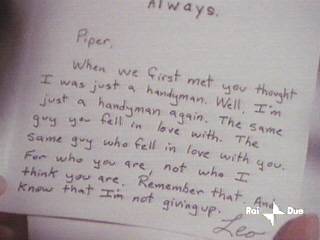 Always.
Piper,
When we first met you thought
I was just a handyman. Well, I'm
just a handyman again. The same
guy you fell in love with. The
same guy who fell in love with you.
For who you are, not who I
think you are. Remember that. And
know that I'm not giving up.
Leo
Rai Due